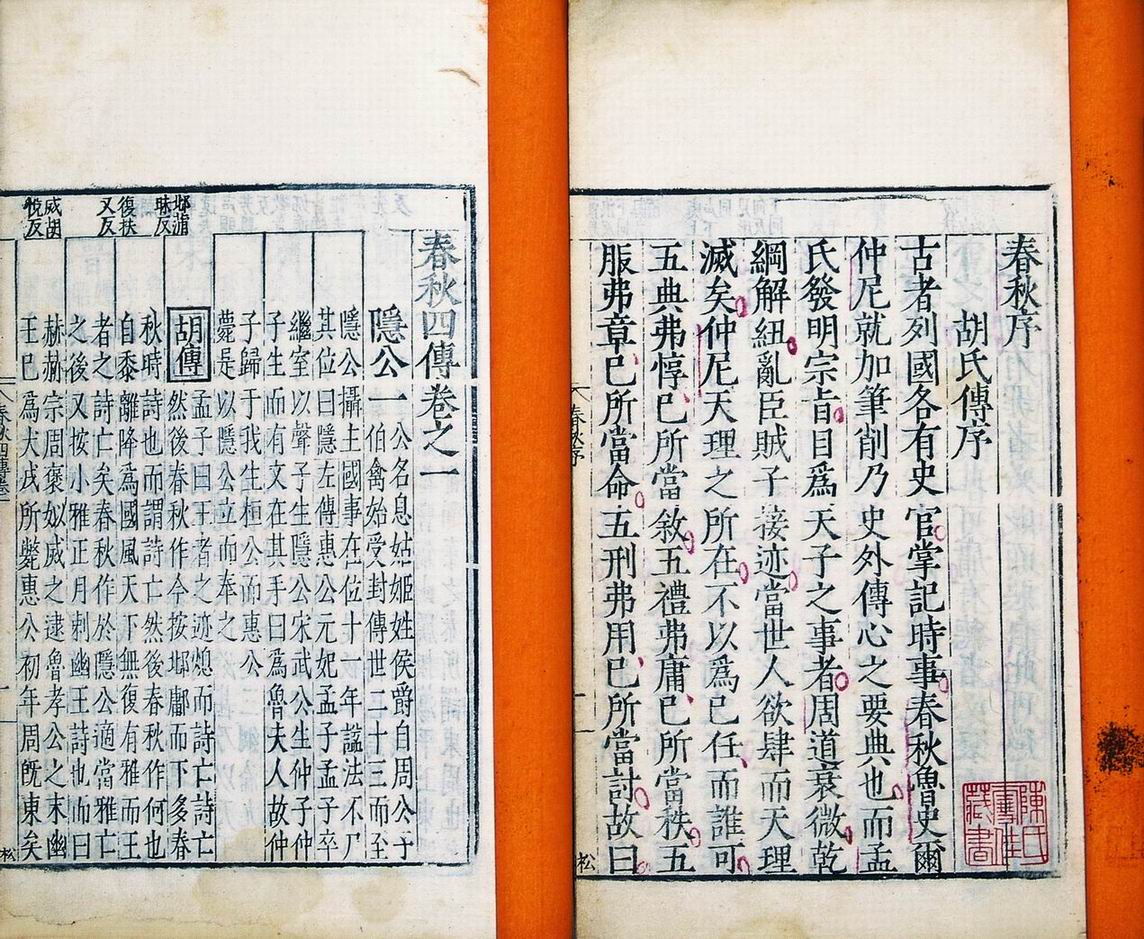 春秋序
胡氏傳序
古者列國各有史官掌記時事春秋魯史爾
仲尼就加筆削乃史外傳心之要典也而孟
氏發明宗旨目爲天子之事者周道衰微乾
綱解紐亂臣賊子接迹當世人欲肆而天理
滅矣仲尼天理之所在不以爲己任而誰可
五典弗惇己所當敘五禮弗庸己所當秩五
服弗章己所當命五刑弗用己所當討故曰
春秋序 一 松
陳氏
藏書
邶蒲
昧反
復扶
又反
威胡
悅反
春秋四傳卷之一
隱公一
公名息姑姬姓侯爵自周公子
伯禽始受封傳世二十三而至
隱公攝主國事在位十一年謚法不尸
其位曰隱左傳惠公元妃孟子孟子卒
繼室以聲子生隱公宋武公生仲子仲
子生而有文在其手曰爲魯夫人故仲
子歸于我生桓公而惠公
薨是以隱公立而奉之
胡傳
孟子曰王者之迹熄而詩亡詩亡
然後春秋作今按邶鄘而下多春
秋時詩也而謂詩亡然後春秋作何也
自黍離降爲國風天下無復有雅而王
者之詩亡矣春秋作於隱公適當雅亡
之後又按小雅正月刺幽王詩也而曰
赫赫宗周褒姒威之逮魯孝公之末幽
王巳爲犬戎所斃惠公初年周旣東矣
春秋四傳卷一 一 松